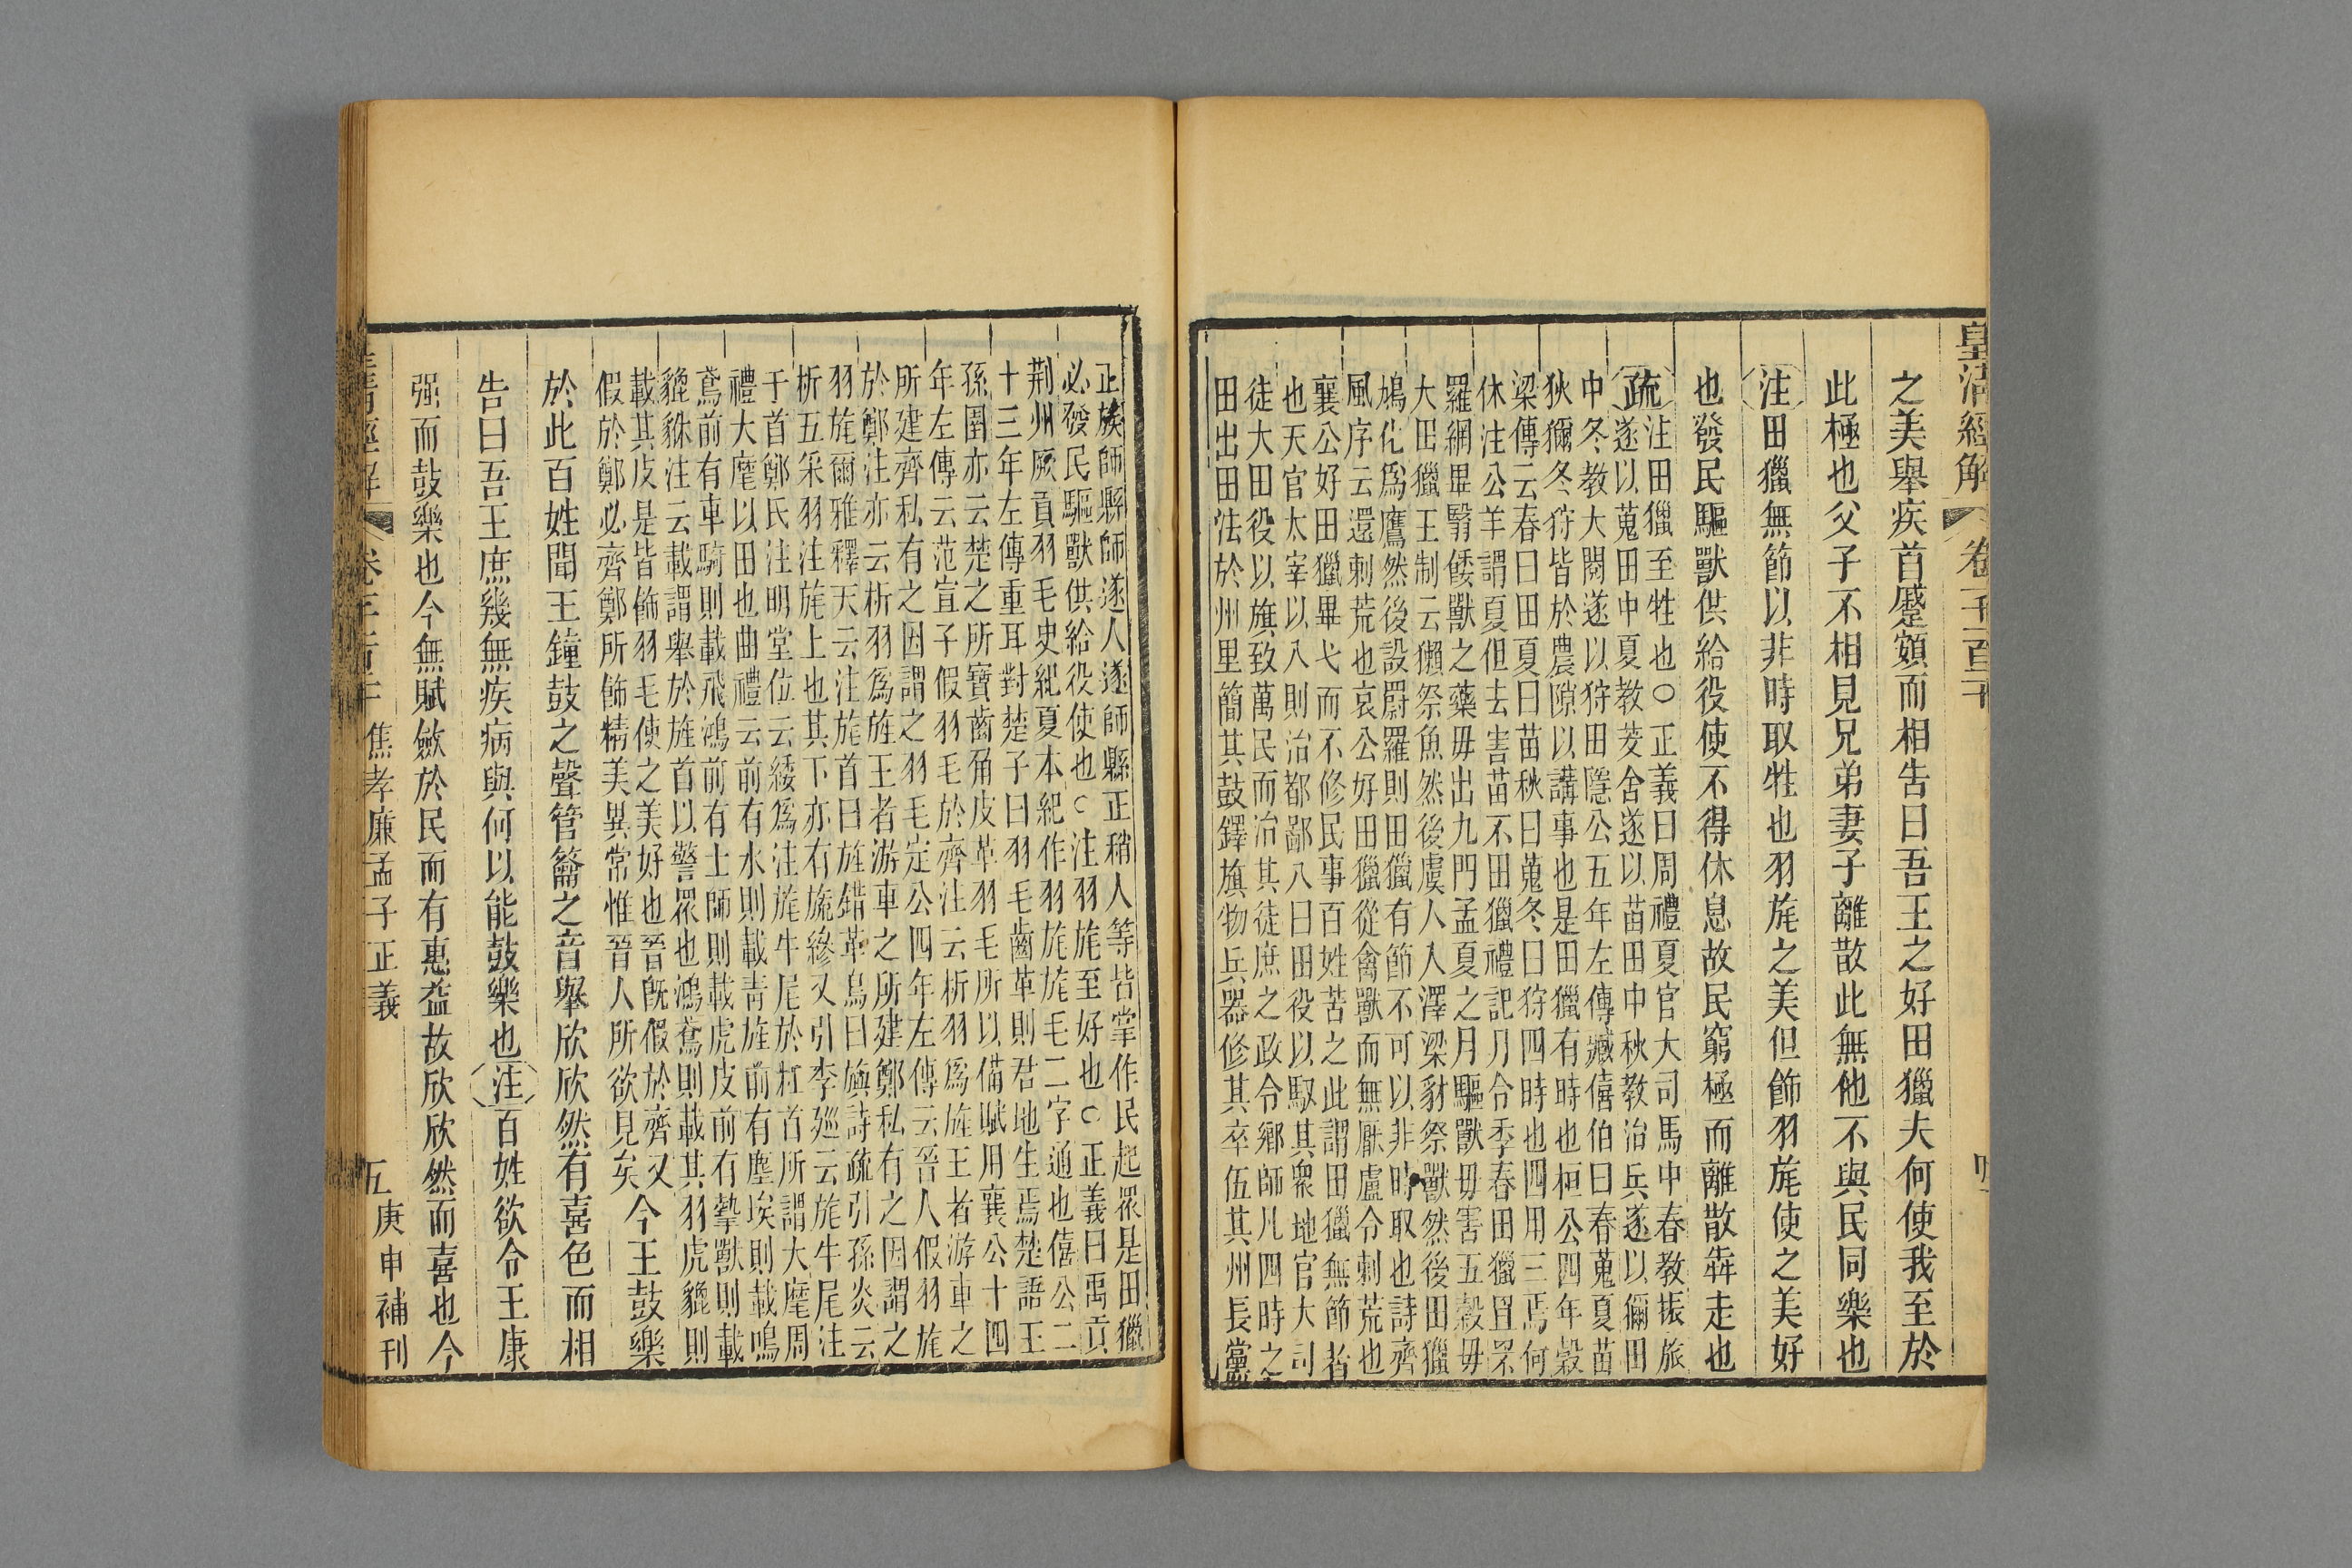 皇清經解 卷千一百二十
之美舉疾首蹙頞而相告曰吾王之好田獵夫何使我至於
此極也父子不相見兄弟妻子離散此無他不與民同樂也
注田獵無節以非時取牲也羽旄之美但飾羽旄使之美好
也發民驅獸供給役使不得休息故民窮極而離散奔走也
疏
注田獵至牲也○正義曰周禮夏官大司馬中春教振旅
遂以蒐田中夏教茇舍遂以苗田中秋教治兵遂以獮田
中冬教大閱遂以狩田隱公五年左傳臧僖伯曰春蒐夏苗
秋獮冬狩皆於農隙以講事也是田獵有時也桓公四年穀
梁傳云春曰田夏曰苗秋曰蒐冬曰狩四時也四用三焉何
休注公羊謂夏但去害苗不田獵禮記月令季春田獵罝罘
羅網畢翳餧獸之藥毋出九門孟夏之月驅獸毋害五穀毋
大田獵王制云獺祭魚然後虞人入澤梁豺祭獸然後田獵
鳩化爲鷹然後設罻羅則田獵有節不可以非時取也詩齊
風序云還刺荒也哀公好田獵從禽獸而無厭盧令刺荒也
襄公好田獵畢弋而不修民事百姓苦之此謂田獵無節者
也天官太宰以八則治都鄙八曰田役以馭其衆地官大司
徒大田役以旗致萬民而治其徒庶之政令鄉師凡四時之
田出田法於州里簡其鼓鐸旗物兵器修其卒伍其州長黨
正族師縣師遂人遂師縣正稍人等皆掌作民起眾是田獵
必發民驅獸供給役使也○注羽旄至好也○正義曰禹貢
荆州厥貢羽毛史紀夏本紀作羽旄旄毛二字通也僖公二
十三年左傳重耳對楚子曰羽毛齒革則君地生焉楚語王
孫圉亦云楚之所寶齒角皮革羽毛所以備賦用襄公十四
年左傳云范宣子假羽毛於齊注云析羽爲旌王者游車之
所建齊私有之因謂之羽毛定公四年左傳云晉人假羽旄
於鄭注亦云析羽爲旌王者游車之所建鄭私有之因謂之
羽旄爾雅釋天云注旄首曰旌錯革鳥曰旟詩疏引孫炎云
析五采羽注旄上也其下亦有旒縿又引李廵云旄牛尾注
于首鄭氏注明堂位云緌爲注旄牛尾於杠首所謂大麾周
禮大麾以田也曲禮云前有水則載青旌前有塵埃則載鳴
鳶前有車騎則載飛鴻前有士師則載虎皮前有摯獸則載
貔貅注云載謂舉於旌首以警眾也鴻鳶則載其羽虎貔則
載其皮是皆飾羽毛使之美好也晉既假於齊又
假於鄭必齊鄭所飾精美異常惟晉人所欲見矣
今王鼓樂
於此百姓聞王鐘鼓之聲管籥之音舉欣欣然有喜色而相
告曰吾王庶幾無疾病與何以能鼓樂也注百姓欲令王康
强而鼓樂也今無賦斂於民而有惠益故欣欣然而喜也今
焦孝廉孟子正義 五 庚申補刊